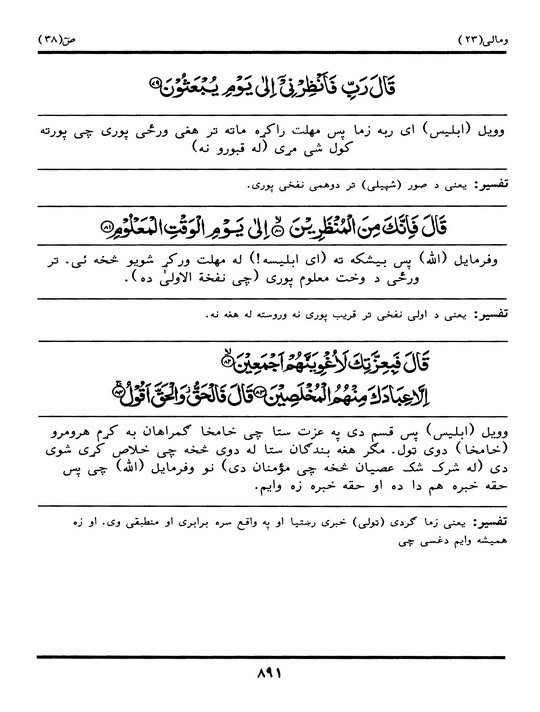 ومالی(۲۳)
صٓ(۳۸)
قَالَ رَبِّ فَاَنْظِرْنِیْۤ اِلٰی یَوْمِ یُبْعَثُوْنَ
وویل (ابلیس) ای ربه زما پس مهلت راکړه ماته تر هغی ورځی پوری چی پورته
کول شی مړی (له قبورو نه)
تفسیر: یعنی د صور (شپیلی) تر دوهمی نفخی پوری.
قَالَ فَاِنَّكَ مِنَ الْمُنْظَرِیْنَ ۙ اِلٰی یَوْمِ الْوَقْتِ الْمَعْلُوْمِ
وفرمایل (الله) پس بیشکه ته (ای ابلیسه!) له مهلت ورکړ شویو څخه ئی. تر
ورځی د وخت معلوم پوری (چی نفخة الاولیٰ ده).
تفسیر: یعنی د اولی نفخی تر قریب پوری نه وروسته له هغه نه.
قَالَ فَبِعِزَّتِكَ لَاُغْوِیَنَّهُمْ اَجْمَعِیْنَ ۙ
اِلَّا عِبَادَكَ مِنْهُمُ الْمُخْلَصِیْنَ قَالَ فَالْحَقُّ وَالْحَقَّ اَقُوْلُ
وویل (ابلیس) پس قسم دی په عزت ستا چی خامخا گمراهان به کړم هرومرو
(خامخا) دوی تول. مگر هغه بندگان ستا له دوی څخه چی خلاص کړی شوی
دی (له شرک شک عصیان څخه چی مؤمنان دی) نو وفرمایل (الله) چی پس
حقه خبره هم دا ده او حقه خبره زه وایم.
تفسیر: یعنی زما گردی (تولی) خبری رښتیا او په واقع سره برابری او منطبقی وی. او زه
همیشه وایم دغسی چی
۸۹۱